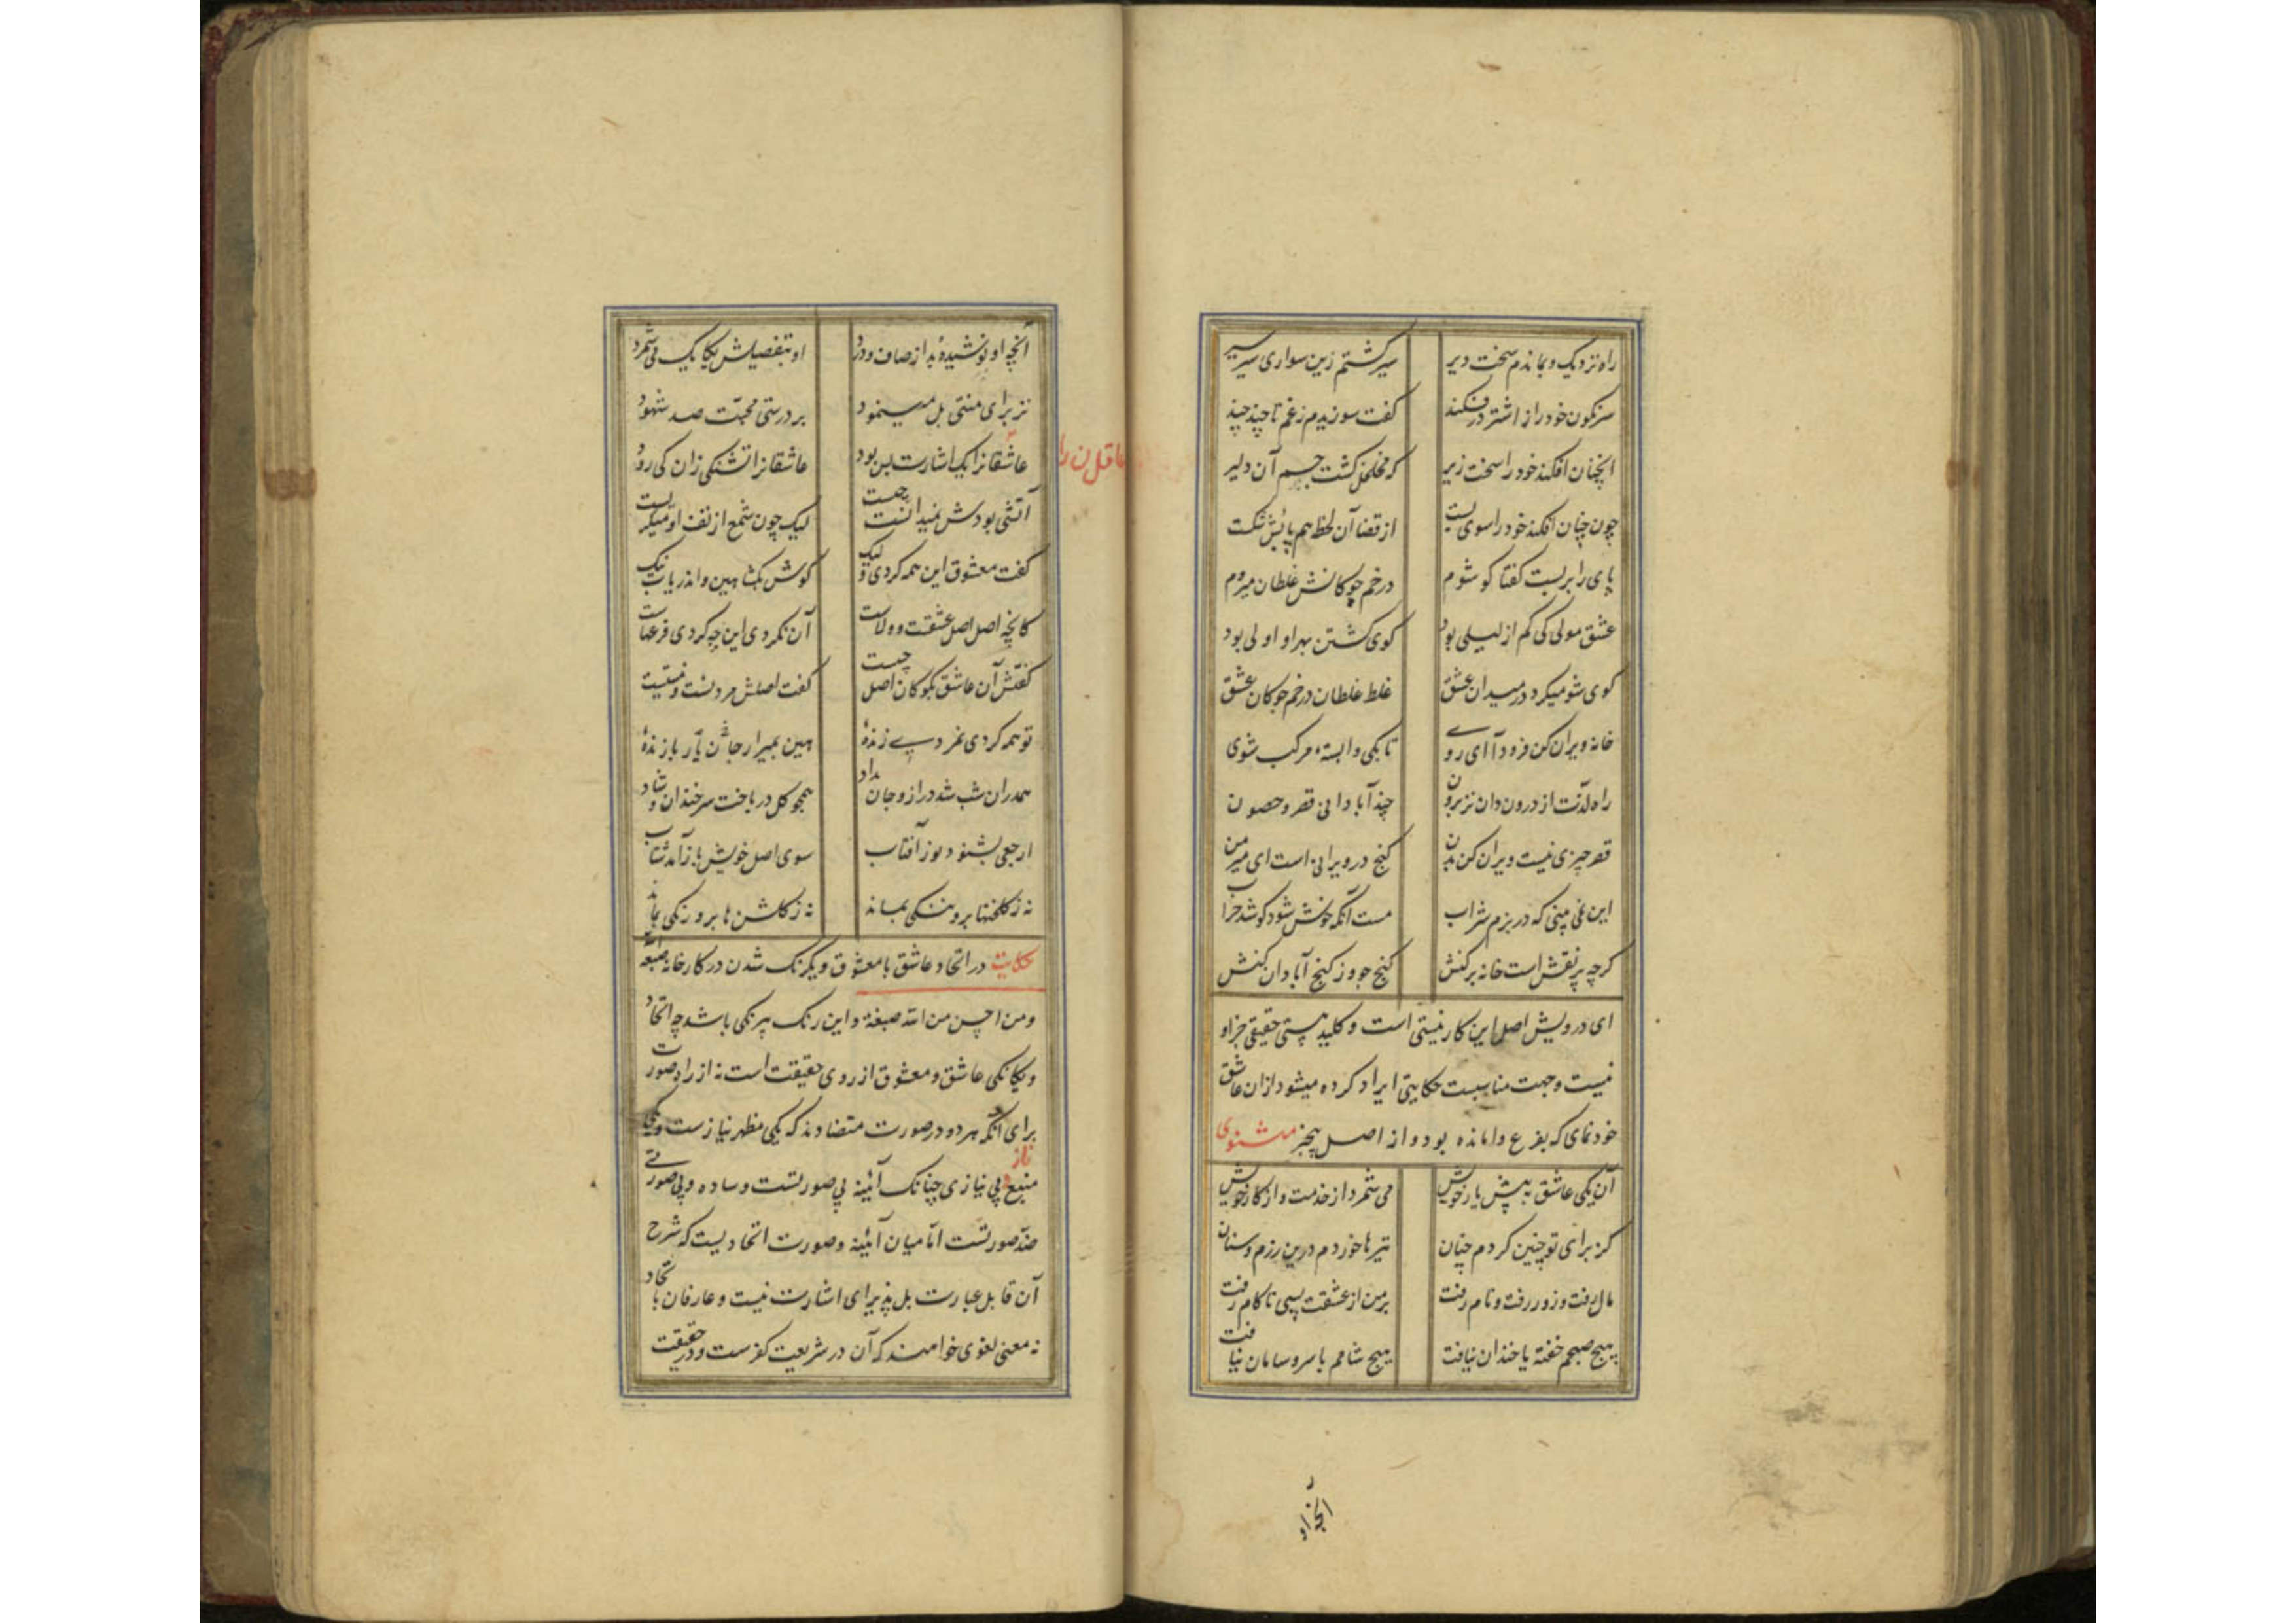 راه نزدیک و بماندم سخت دیر سیر کشتم زین سواری سیر سیر
سرنکون خود را از اشتر درفکند کفت سوزیدم زغم تا چند چند
آنچنان افکند خود را سخت زیر که مخلخل کشت جسم آن دلیر
چون چنان افکند خود را سوی پست از قضا آن لحظه هم پایش شکست
پای را بربست کفتا کو شوم در خم چوکانش غلطان میروم
عشق مولی کی کم از لیلی بود کوی کشتن بهر او اولی بود
کوی شو میکرد در میدان عشق غلط غلطان در خم چوکان عشق
خانه ویران کن فرود آ ای روی تا بکی وابستهٔ مرکب شوی
راه لذت از درون دان نز برون چند آبادانی قصر و حصون
قصر چیزی نیست ویران کن بدن کنج در ویرانی است ای میر من
این نمی بینی که در بزم شراب مست آنکه خوش شود کو شد خراب
کرچه پر نقش است خانه برکنش کنج جو وز کنج آبادان کنش
ای درویش اصل این کار نیستی است و کلید هستی حقیقی جز او
نیست و جهت مناسبت حکایتی ایراد کرده میشود ازان عاشق
خودنمای که بفرع وامانده بود و از اصل بیخبر مثنوی
آن یکی عاشق به پیش یار خویش می شمرد از خدمت و از کار خویش
کز برای تو چنین کردم چنان تیرها خوردم درین رزم و سنان
مال رفت و زور رفت و نام رفت بر من از عشقت بسی ناکام رفت
هیچ صبحم خفته یا خندان نیافت هیچ شامم با سر و سامان نیافت
آنچه او
آنچه او نوشیده بد از صاف و درد او بتفصیلش یکایک می شمرد
نز برای منتی بل مینمود بر درستی محبت صد شهود
عاشقانرا یک اشارت بس بود عاشقانرا تشنکی زان کی رود
عاقلان را
آتشی بودش نمیدانست چیست لیک چون شمع از تف او میکریست
کفت معشوق این همه کردی و لیک کوش بکشا هین و اندریاب نیک
کانچه اصل اصل عشقست و ولاست آن نکردی این چه کردی فرعهاست
کفتش آن عاشق بکو کان اصل چیست کفت اصلش مردنست و نیستیست
تو همه کردی نمردی زندهٔ هین بمیر ار یار جان بازندهٔ
همدران شب شد دراز و جان بداد همچو کل درباخت سر خندان و شاد
ارجعی بشنود نور آفتاب سوی اصل خویش باز آمد شتاب
نه ز کلخنها برو ننکی بماند نه ز کلشن ها برو رنکی بماند
حکایت در اتحاد عاشق با معشوق و یکرنک شدن در کارخانه صبغة الله
و من احسن من الله صبغة و این رنک بیرنکی باشد چه اتحاد
و یکانکی عاشق و معشوق از روی حقیقت است نه از راه صورت
برای آنکه هر دو در صورت متضادند که یکی مظهر نیازست و یکی
منبع ناز و بی نیازی چنانک آئینه بی صورتست و ساده و بی صورتی
ضد صورتست اما میان آئینه و صورت اتحادیست که شرح
آن قابل عبارت بل پذیرای اشارت نیست و عارفان باتحاد
نه معنی لغوی خواهند که آن در شریعت کفرست و در حقیقت